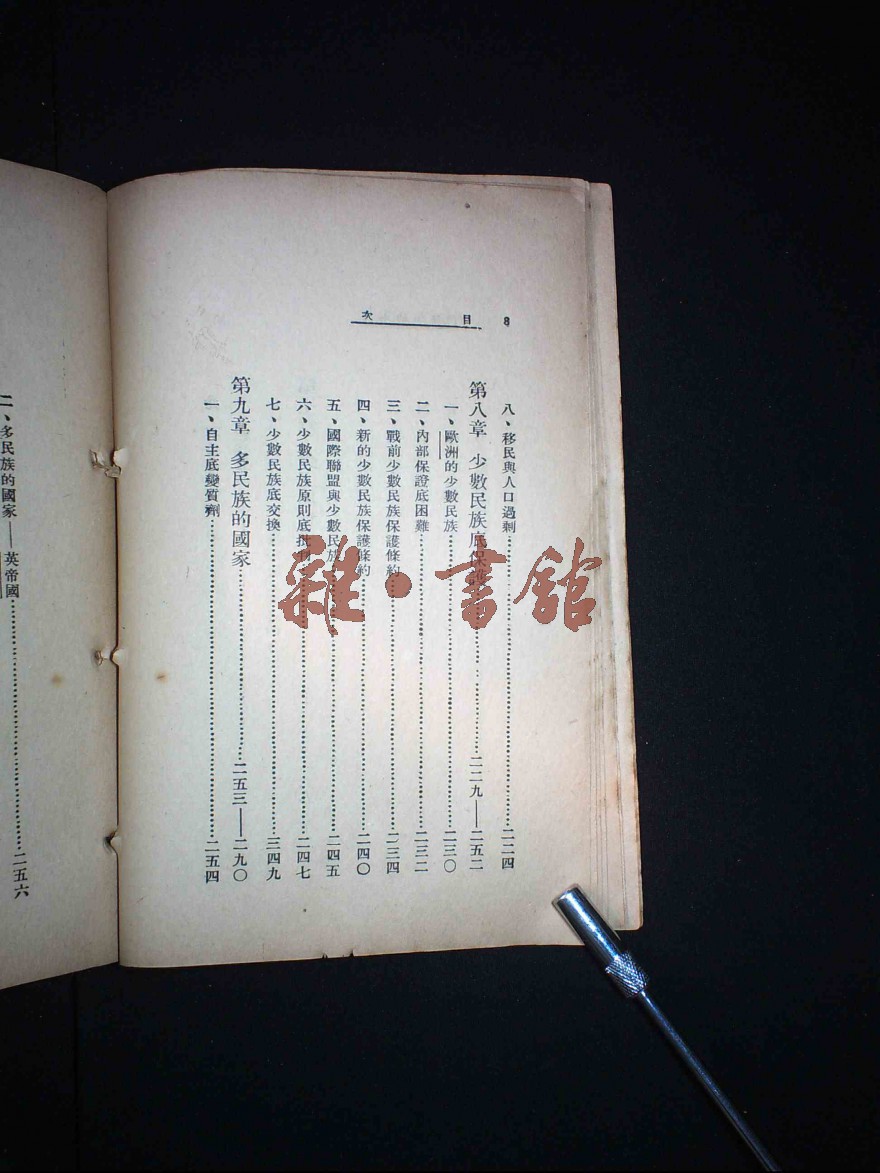 8 目次
八、移民與人口過剩……二二四
第八章 少數民族底保護……二二九——二五二
一、歐洲的少數民族……二三〇
二、內部保證底困難……二三二
三、戰前少數民族保護條約……二三四
四、新的少數民族保護條約……二四〇
五、國際聯盟與少數民族……二四五
六、少數民族原則底批判……二四七
七、少數民族底交換……三四九
第九章 多民族的國家……二五三——二九〇
一、自主底變質劑……二五四
二、多民族的國家——英帝國……二五六
雜·書館